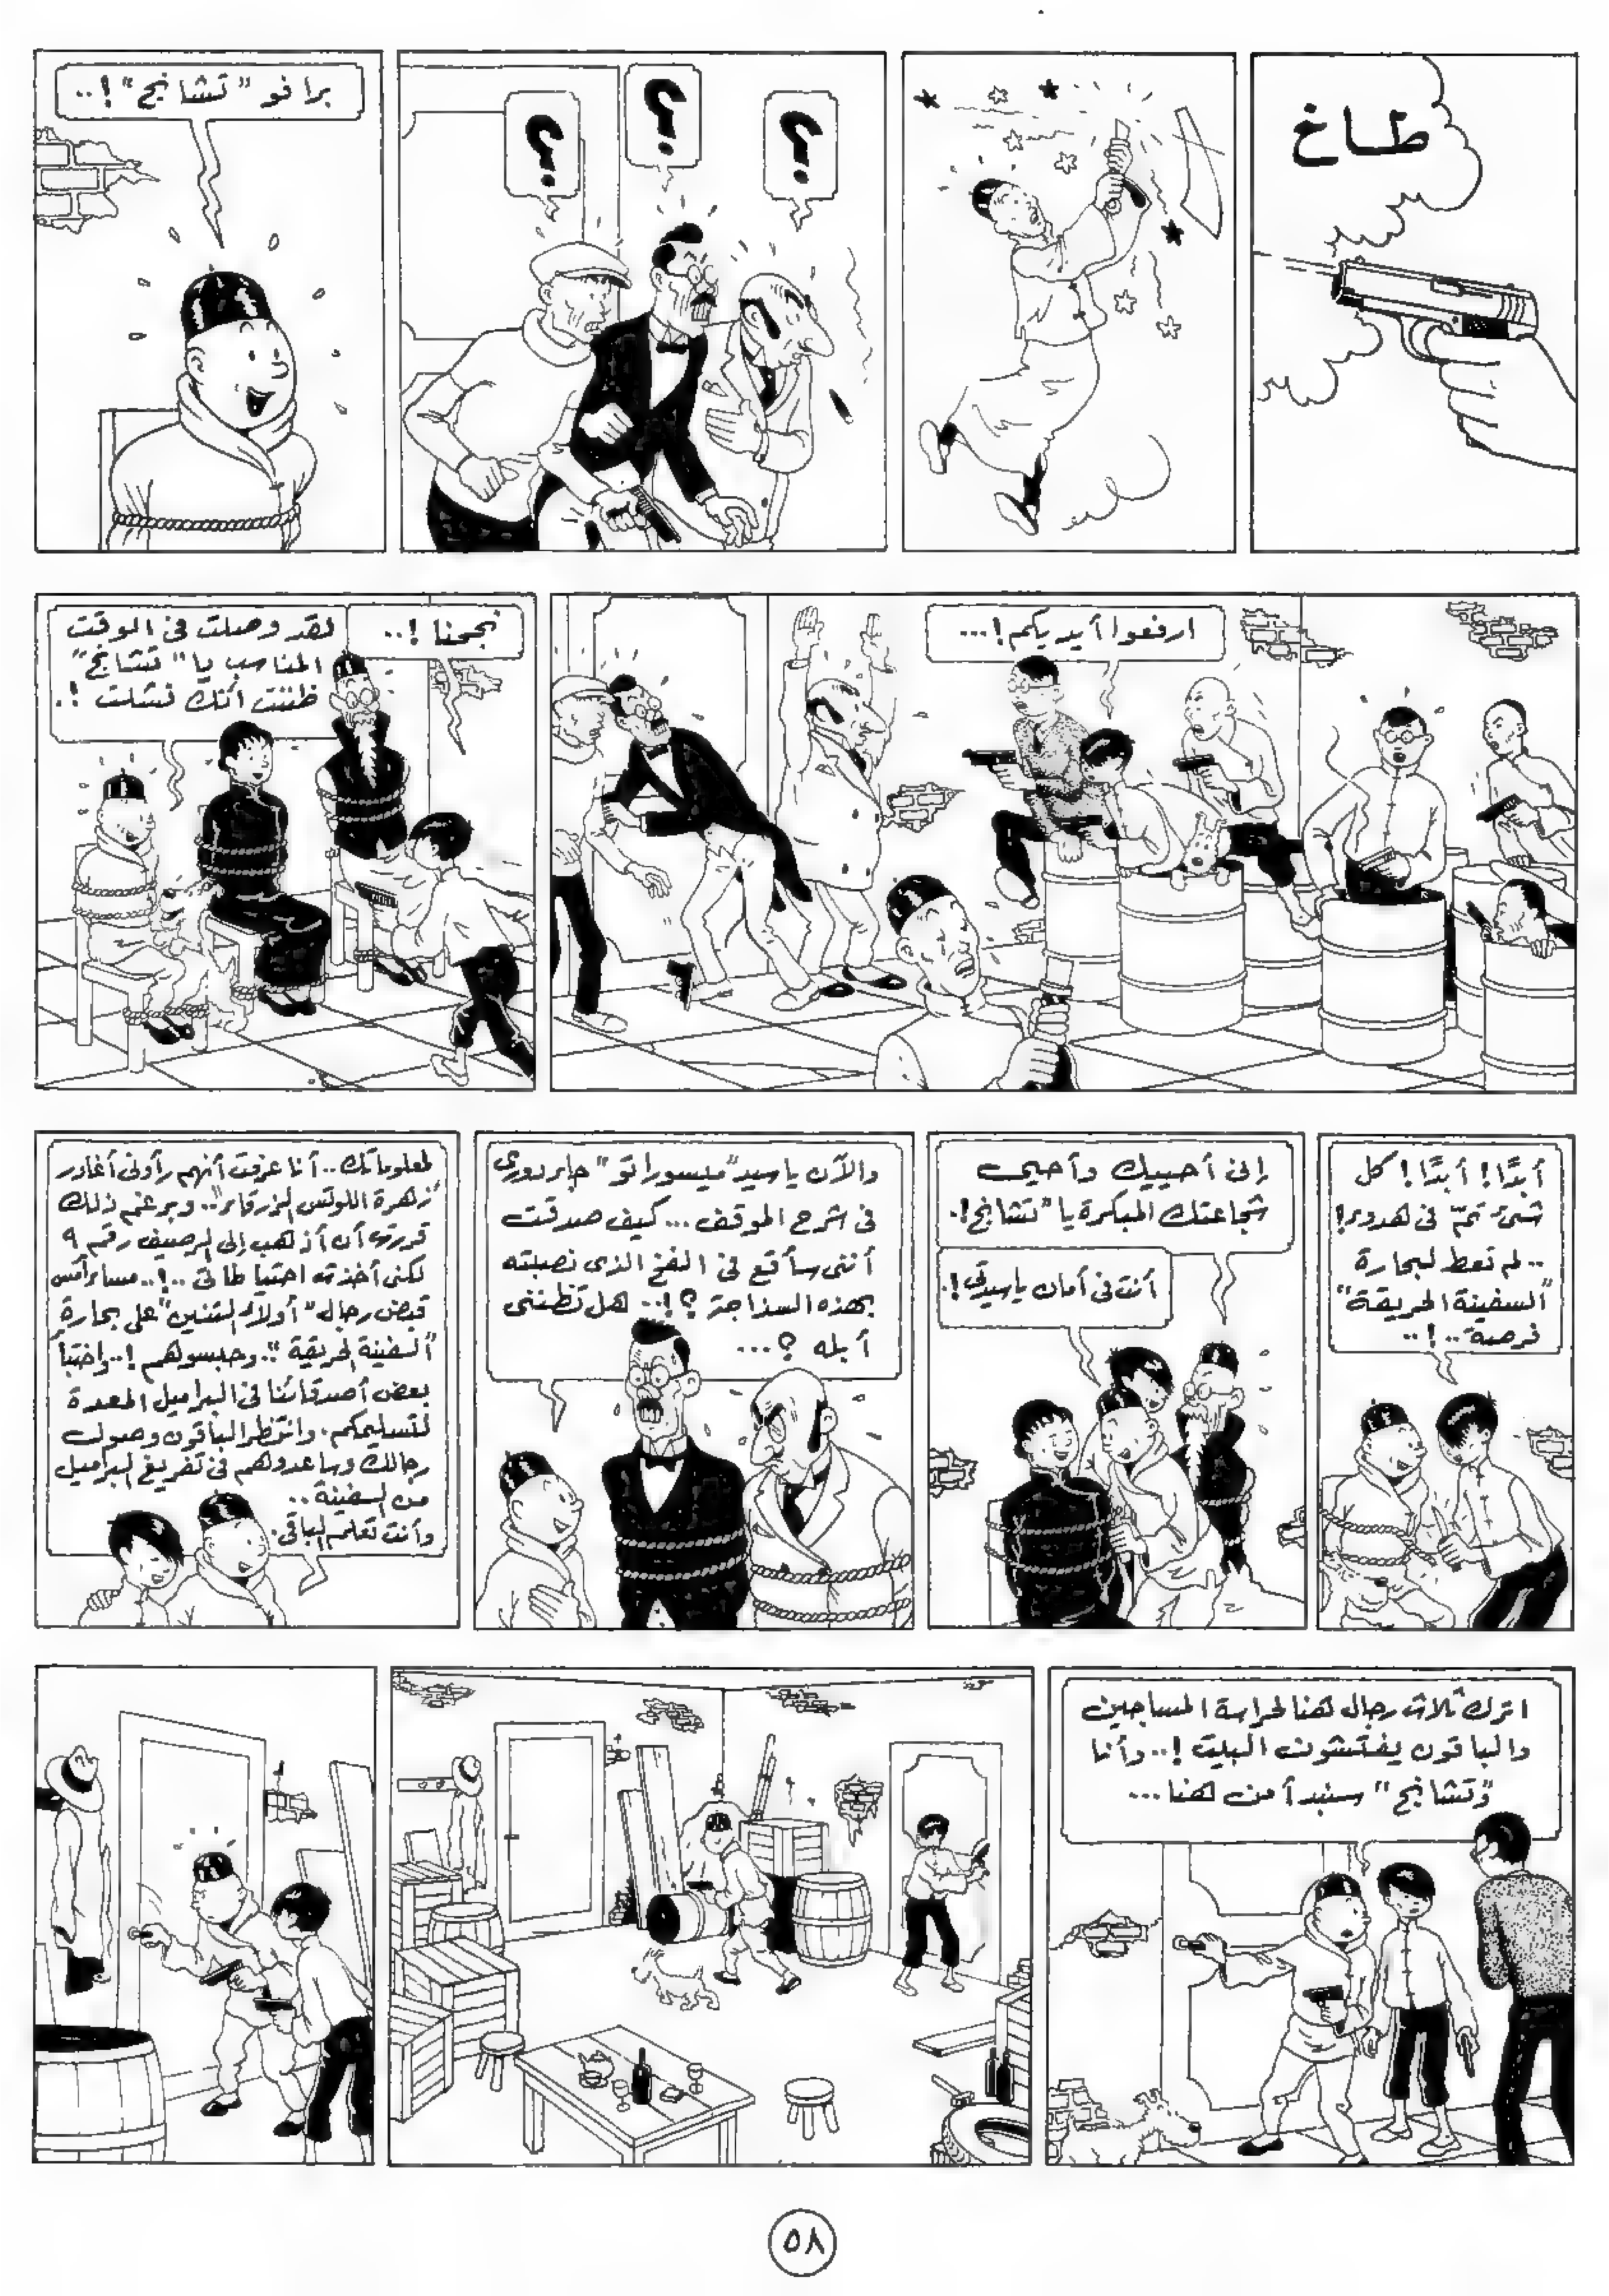 طاخ
؟
؟
؟
برافو "تشانج"!..
ارفعوا أيديكم!...
نجحنا!..
لقد وصلت فى الوقت
المناسب يا "تشانج"
ظننت أنك فشلت!..
أبدًا! أبدًا! كل
شىء تمّ فى هدوء!
..لم تعط لبحارة
"السفينة الحريقة"
فرصة..!..
إنى أحييك وأحيى
شجاعتك المبكرة يا "تشانج"!.
أنت فى أمان ياسيدتى!.
والآن ياسيد "ميسوراتو" جاء دورى
فى شرح الموقف... كيف صدقت
أننى سأقع فى الفخ الذى نصبته
بهذه السذاجة؟!.. هل تظننى
أبله؟...
لمعلوماتك.. أنا عرفت أنهم رأونى أغادر
"زهرة اللوتس الزرقاء".. وبرغم ذلك
قررت أن أذهب إلى الرصيف رقم ٩
لكنى أخذت احتياطاتى..!.. مساء أمس
قبض رجال "أولاد التنين" على بحارة
"السفينة الحريقة".. وحبسوهم!.. واختبأ
بعض أصدقائنا فى البراميل المعدة
لتسليمكم. وانتظر الباقون وصول
رجالك وساعدوهم فى تفريغ البراميل
من السفينة..
وأنت تعلم الباقى.
اترك ثلاث رجال هنا لحراسة المساجين
والباقون يفتشون البيت!.. وأنا
و"تشانج" سنبدأ من هنا...
٥٨